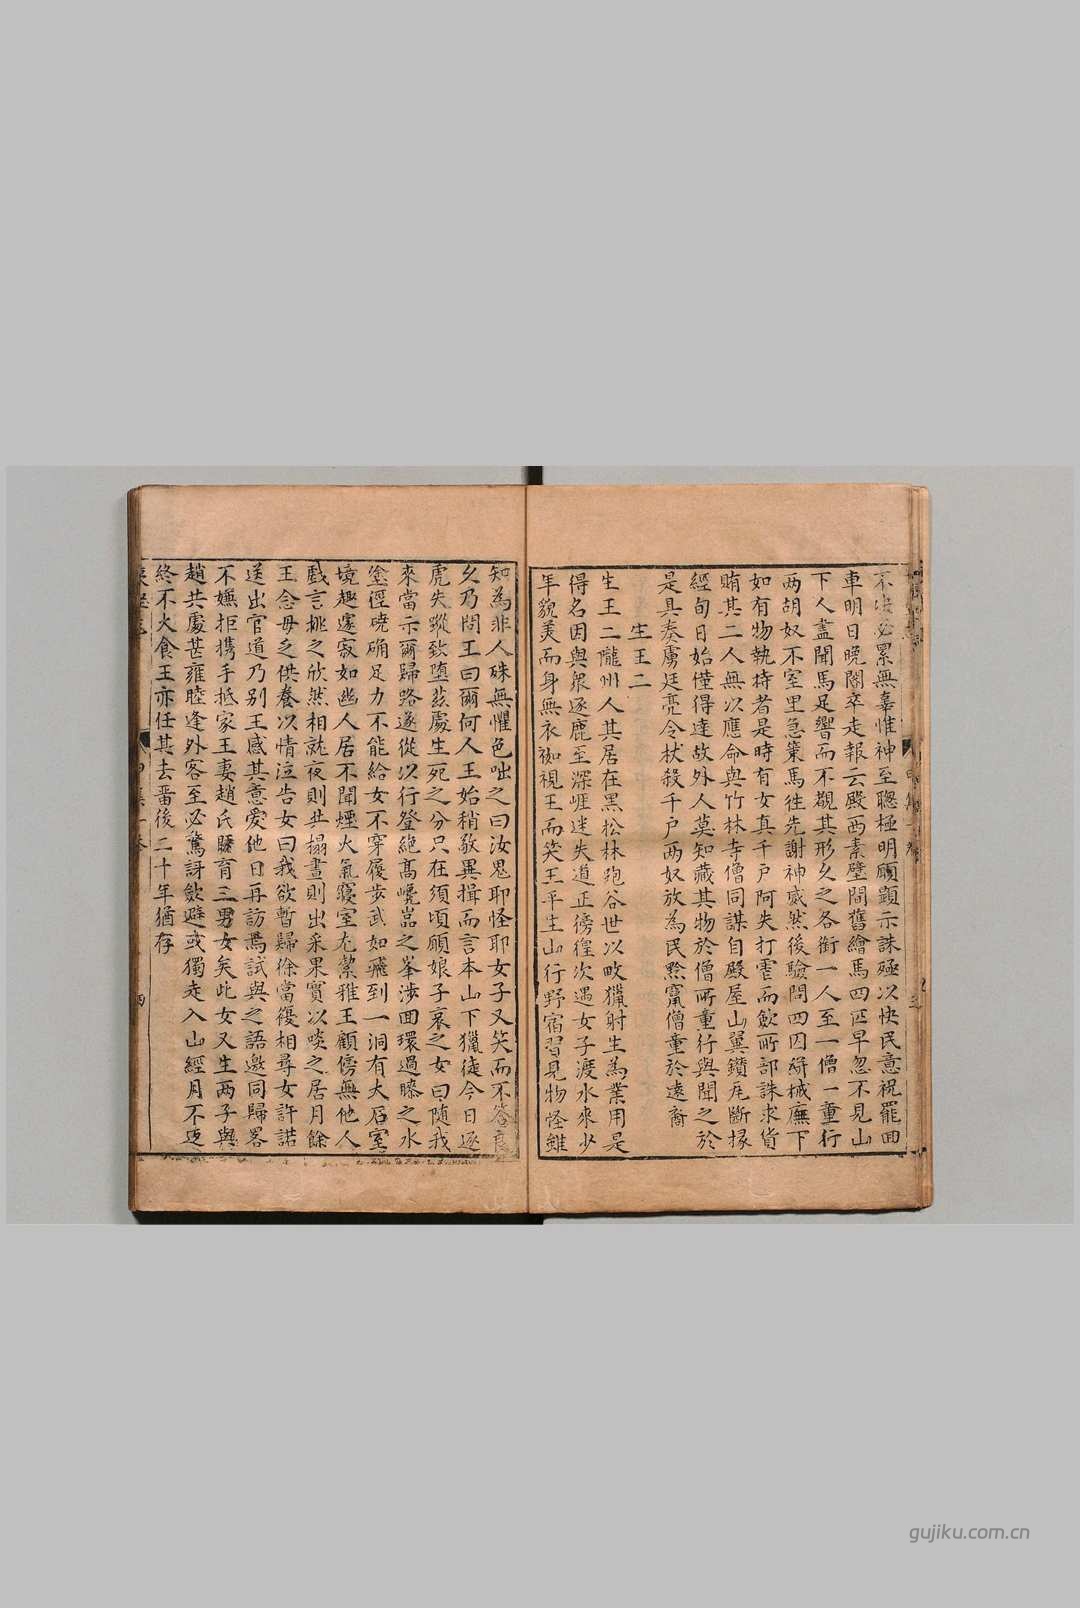 不決必累無辜惟神至聰極明願顯示誅殛以快民意祝罷回
車明日晚閽卒走報云殿西素壁間舊繪馬四匹早忽不見山
下人盡聞馬足響而不覩其形久之各銜一人至一僧一童行
两胡奴不窒里急策馬徃先謝神威然後驗問四囚絣械廡下
如有物執持者是時有女真千戶阿失打霍而歛所部誅求貨
賄其二人無以應命與竹林寺僧同謀自殿屋山翼鑽瓦斷椽
經旬日始僅得達故外人莫知藏其物於僧所童行與聞之於
是具奏虜廷亮令杖殺千戶两奴放為民黥竄僧童於遠裔
生王二
生王二隴州人其居在黑松林跑谷世以畋獵射生為業用是
得名因與衆逐鹿至深崕迷失道正傍徨次遇女子渡水來少
年貌美而身無衣袽視王而笑王平生山行野宿習見物怪雖
知為非人殊無懼色咄之曰汝鬼耶怪耶女子又笑而不答良
久乃問王曰爾何人王始稍敬異揖而言本山下獵徒今日逐
虎失蹤致墮兹處生死之分只在須頃願娘子哀之女曰随我
來當示爾歸路遂從以行登絶高嶢嵓之峯涉回環過膝之水
塗徑磽确足力不能給女不穿履步武如飛到一洞有大石室
境趣邃寂如幽人居不聞煙火氣寢室尤潔雅王顧傍無他人
戲言挑之欣然相就夜則共榻晝則出采果實以啖之居月餘
王念母乏供養以情泣告女曰我欲暫歸徐當復相尋女許諾
送出官道乃别王感其意愛他日再訪焉試與之語邀同歸畧
不嫵拒携手抵家王妻趙氏賸育三男女矣此女又生两子與
趙共處甚雍睦逢外客至必驚訝歛避或獨走入山經月不返
終不火食王亦任其去畱後二十年猶存
三
四
gujiku.com.cn